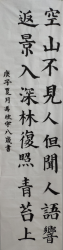 空山不見人但聞人語響
返景入深林復照青苔上
庚子夏月八歲書